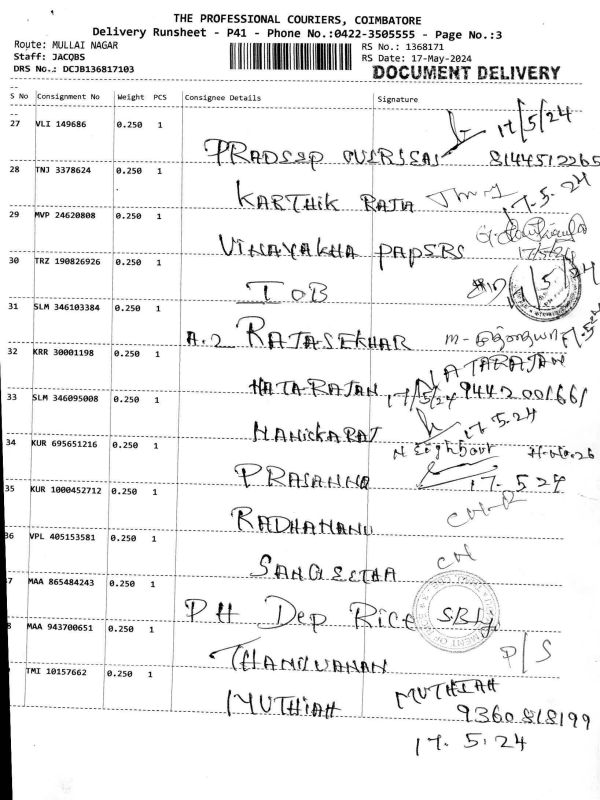 THE PROFESSIONAL COURIERS, COIMBATORE
Delivery Runsheet - P41 - Phone No.:0422-3505555 - Page No.:3
Route: MULLAI NAGAR
RS No.: 1368171
Staff: JACOBS
RS Date: 17-May-2024
DRS No.: DCJB136817103
DOCUMENT DELIVERY
S No Consignment No Weight PCS Consignee Details Signature
27 VLI 149686 0.250 1
17/5/24
PRADEEP OVERSEAS 8144512265
28 TNJ 3378624 0.250 1
KARTHIK RAJA 17.5.24
29 MVP 24620808 0.250 1
VINAYAKHA PAPERS 17/5/24
30 TRZ 190826926 0.250 1
IOB 17/5/24
31 SLM 346103384 0.250 1
A.2 RAJASEKHAR M- 17.5.24
32 KRR 30001198 0.250 1
NATARAJAN
NATARAJAN 17/5/24 9442001661
33 SLM 346095008 0.250 1
MANICKARAJ 17.5.24
34 KUR 695651216 0.250 1
Neighbour H.No.26
PRASANNA 17.5 24
35 KUR 1000452712 0.250 1
RADHAMANI
36 VPL 405153581 0.250 1
SANGEETHA CN
37 MAA 865484243 0.250 1
PH Dep Rice SBI
38 MAA 943700651 0.250 1
P/S
TMI 10157662 0.250 1
MUTHIAH MUTHIAH
9360818199
17.5.24